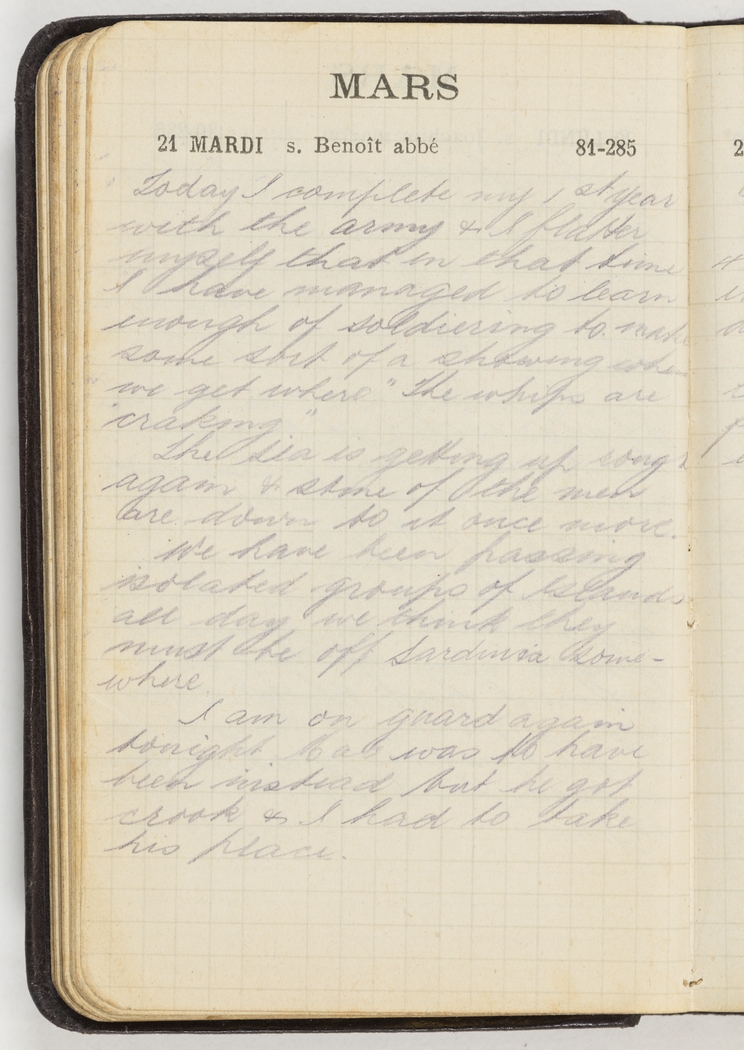 MARS
21 MARDI s. Benoît abbé 81-285
Today I complete my 1st year
with the army & I flatter
myself that in that time
I have managed to learn
enough of soldiering to make
some sort of a showing when
"we get where" "the whips are
craking"
The sea is getting up rough
again & some of the men
are down to it once more.
We have been passing
isolated groups of Islands
all day we think they
must be off Sardinia some-
where.
I am on guard again
tonight was to have
been instead but he got
crook & I had to take
his place.
2